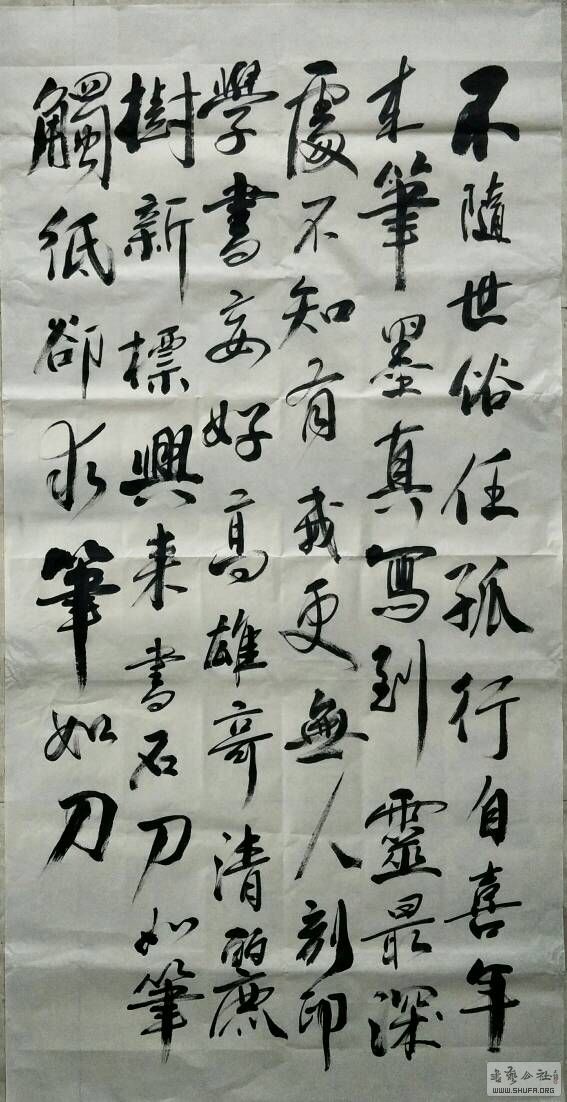 不隨世俗任孤行自喜年
来筆墨真寫到靈最深
處不知有我更無人刻印
學書妄好高雄奇清麗
樹新標興来書石刀如筆
觸紙卻求筆如刀
書藝公社
WWW.SHUFA.ORG